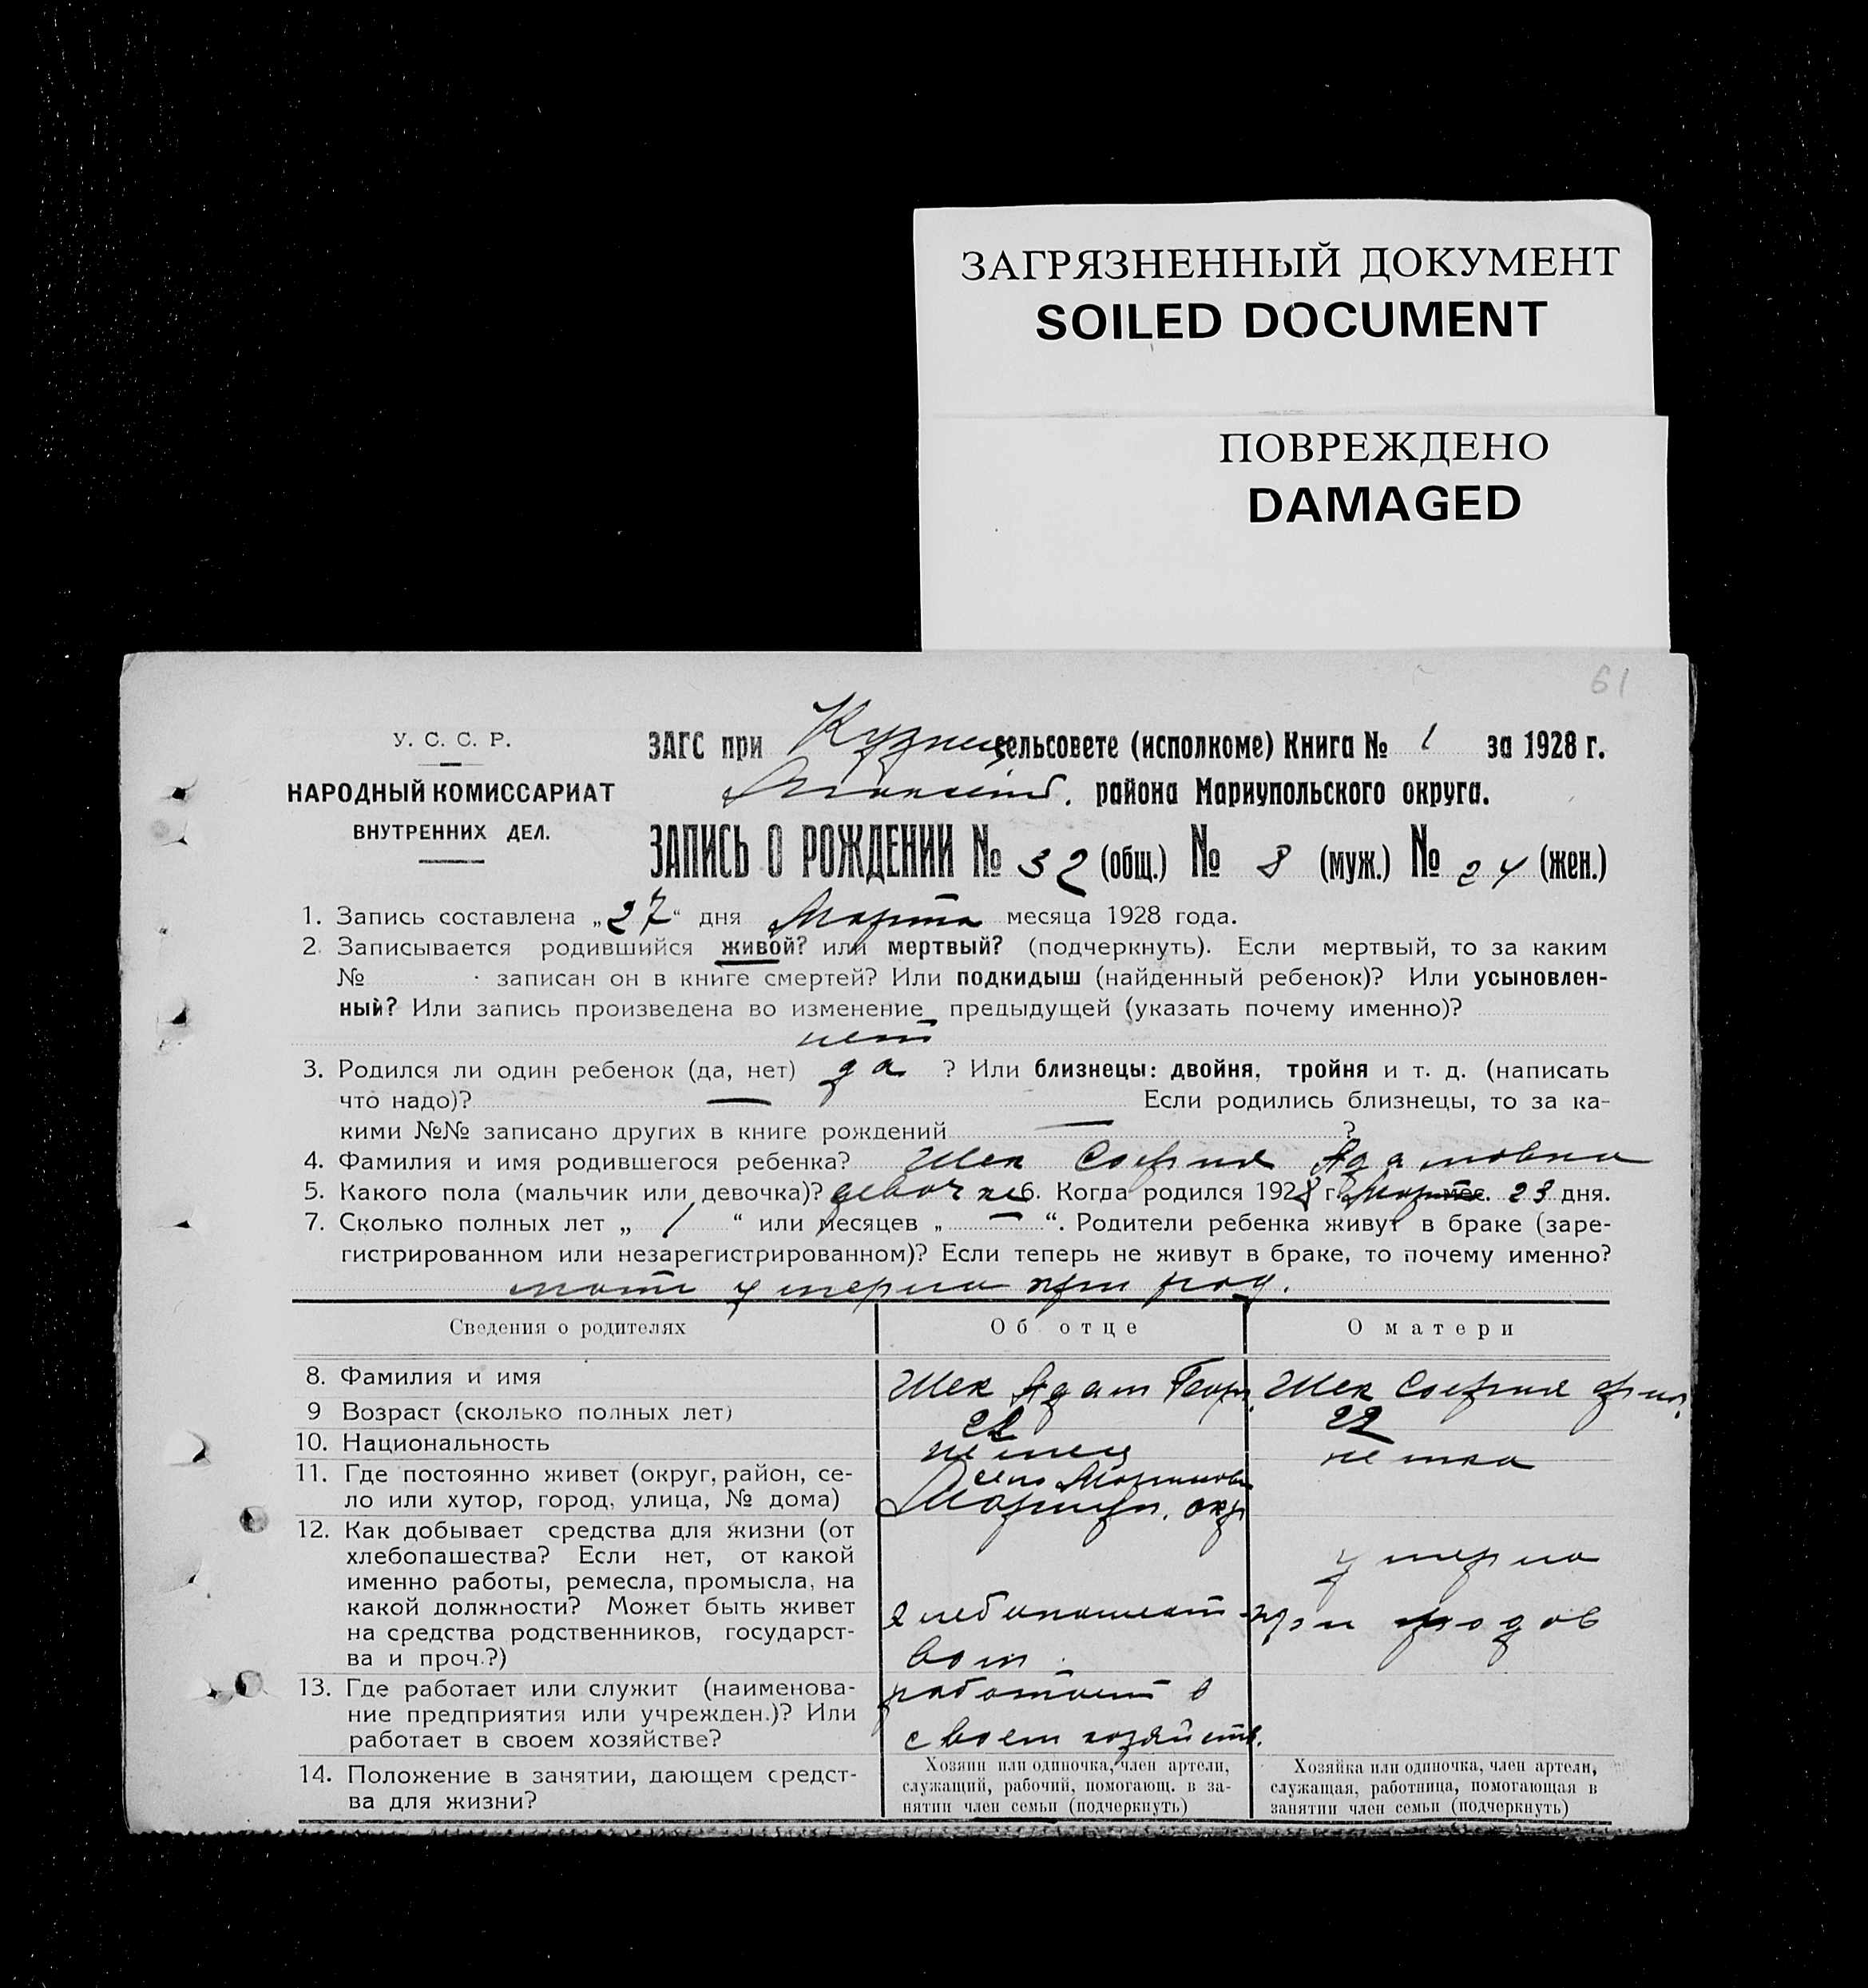 ЗАГРЯЗНЕННЫЙ ДОКУМЕНТ
SOILED DOCUMENT
ПОВРЕЖДЕНО
DAMAGED
61
У. С. С. Р.
НАРОДНЫЙ КОМИССАРИАТ
ВНУТРЕННИХ ДЕЛ.
ЗАГС при Кузнец сельсовете (исполкоме) Книга № 1 за 1928 г.
района Мариупольского округа.
ЗАПИСЬ О РОЖДЕНИИ № 32 (общ.) № 8 (муж.) № 24 (жен.)
1. Запись составлена „27“ дня Марта месяца 1928 года.
2. Записывается родившийся живой? или мертвый? (подчеркнуть). Если мертвый, то за каким
№ записан он в книге смертей? Или подкидыш (найденный ребенок)? Или усыновлен-
ный? Или запись произведена во изменение предыдущей (указать почему именно)?
нет
3. Родился ли один ребенок (да, нет) да ? Или близнецы: двойня, тройня и т. д. (написать
что надо)? — Если родились близнецы, то за ка-
кими №№ записано других в книге рождений — ?
4. Фамилия и имя родившегося ребенка? Шек София Адамовна
5. Какого пола (мальчик или девочка)? девочка 6. Когда родился 1928 г. Марта мес. 23 дня.
7. Сколько полных лет „ / “ или месяцев „ — “. Родители ребенка живут в браке (заре-
гистрированном или незарегистрированном)? Если теперь не живут в браке, то почему именно?
мать умерла при род.
Сведения о родителях Об отце О матери
8. Фамилия и имя Шек Адам Георг. Шек София
9 Возраст (сколько полных лет) 22 22
10. Национальность немец немка
11. Где постоянно живет (округ, район, се-
ло или хутор, город, улица, № дома)
село
Мариуп. окр
12. Как добывает средства для жизни (от
хлебопашества? Если нет, от какой
именно работы, ремесла, промысла, на
какой должности? Может быть живет
на средства родственников, государст-
ва и проч.?)
хлебопашест
вом
умерла
при родов
13. Где работает или служит (наименова-
ние предприятия или учрежден.)? Или
работает в своем хозяйстве?
работает в
своем хозяйств.
14. Положение в занятии, дающем средст-
ва для жизни?
Хозяин или одиночка, член артели,
служащий, рабочий, помогающ. в за-
нятии член семьи (подчеркнуть)
Хозяйка или одиночка, член артели,
служащая, работница, помогающая в
занятии член семьи (подчеркнуть)